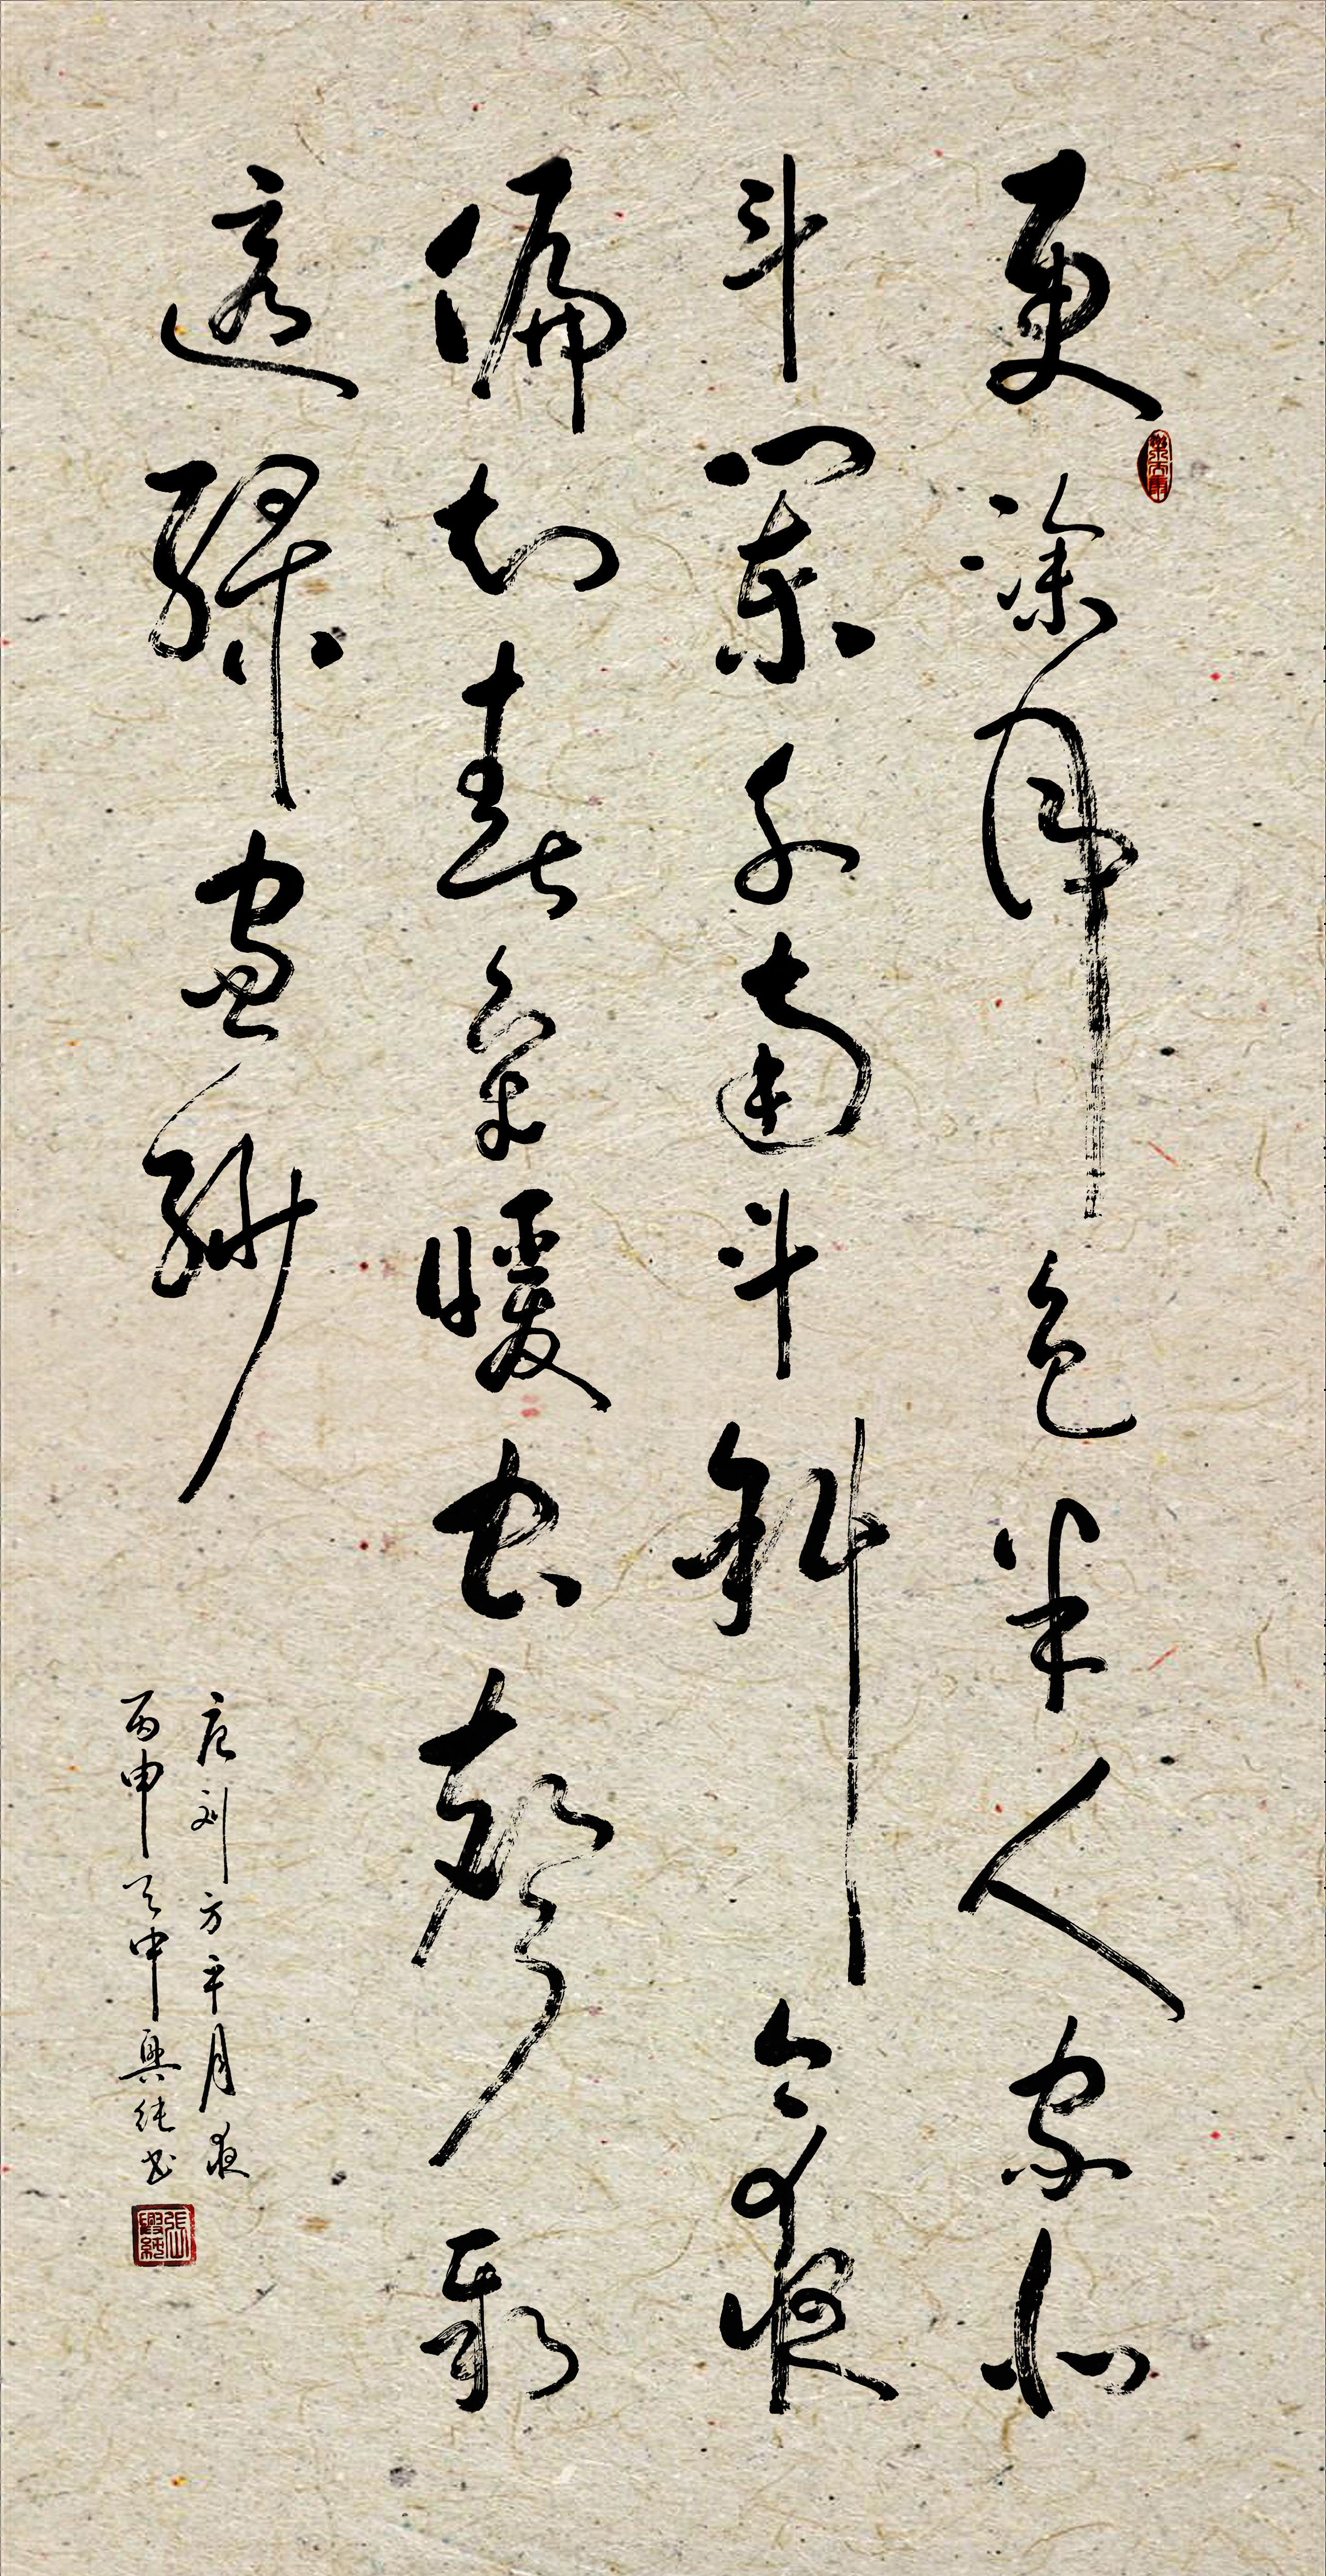 更深月色半人家北
斗闌干南斗斜今夜
偏知春氣暖虫聲新
透綠窗紗
唐刘方平月夜
丙申天中興纯书